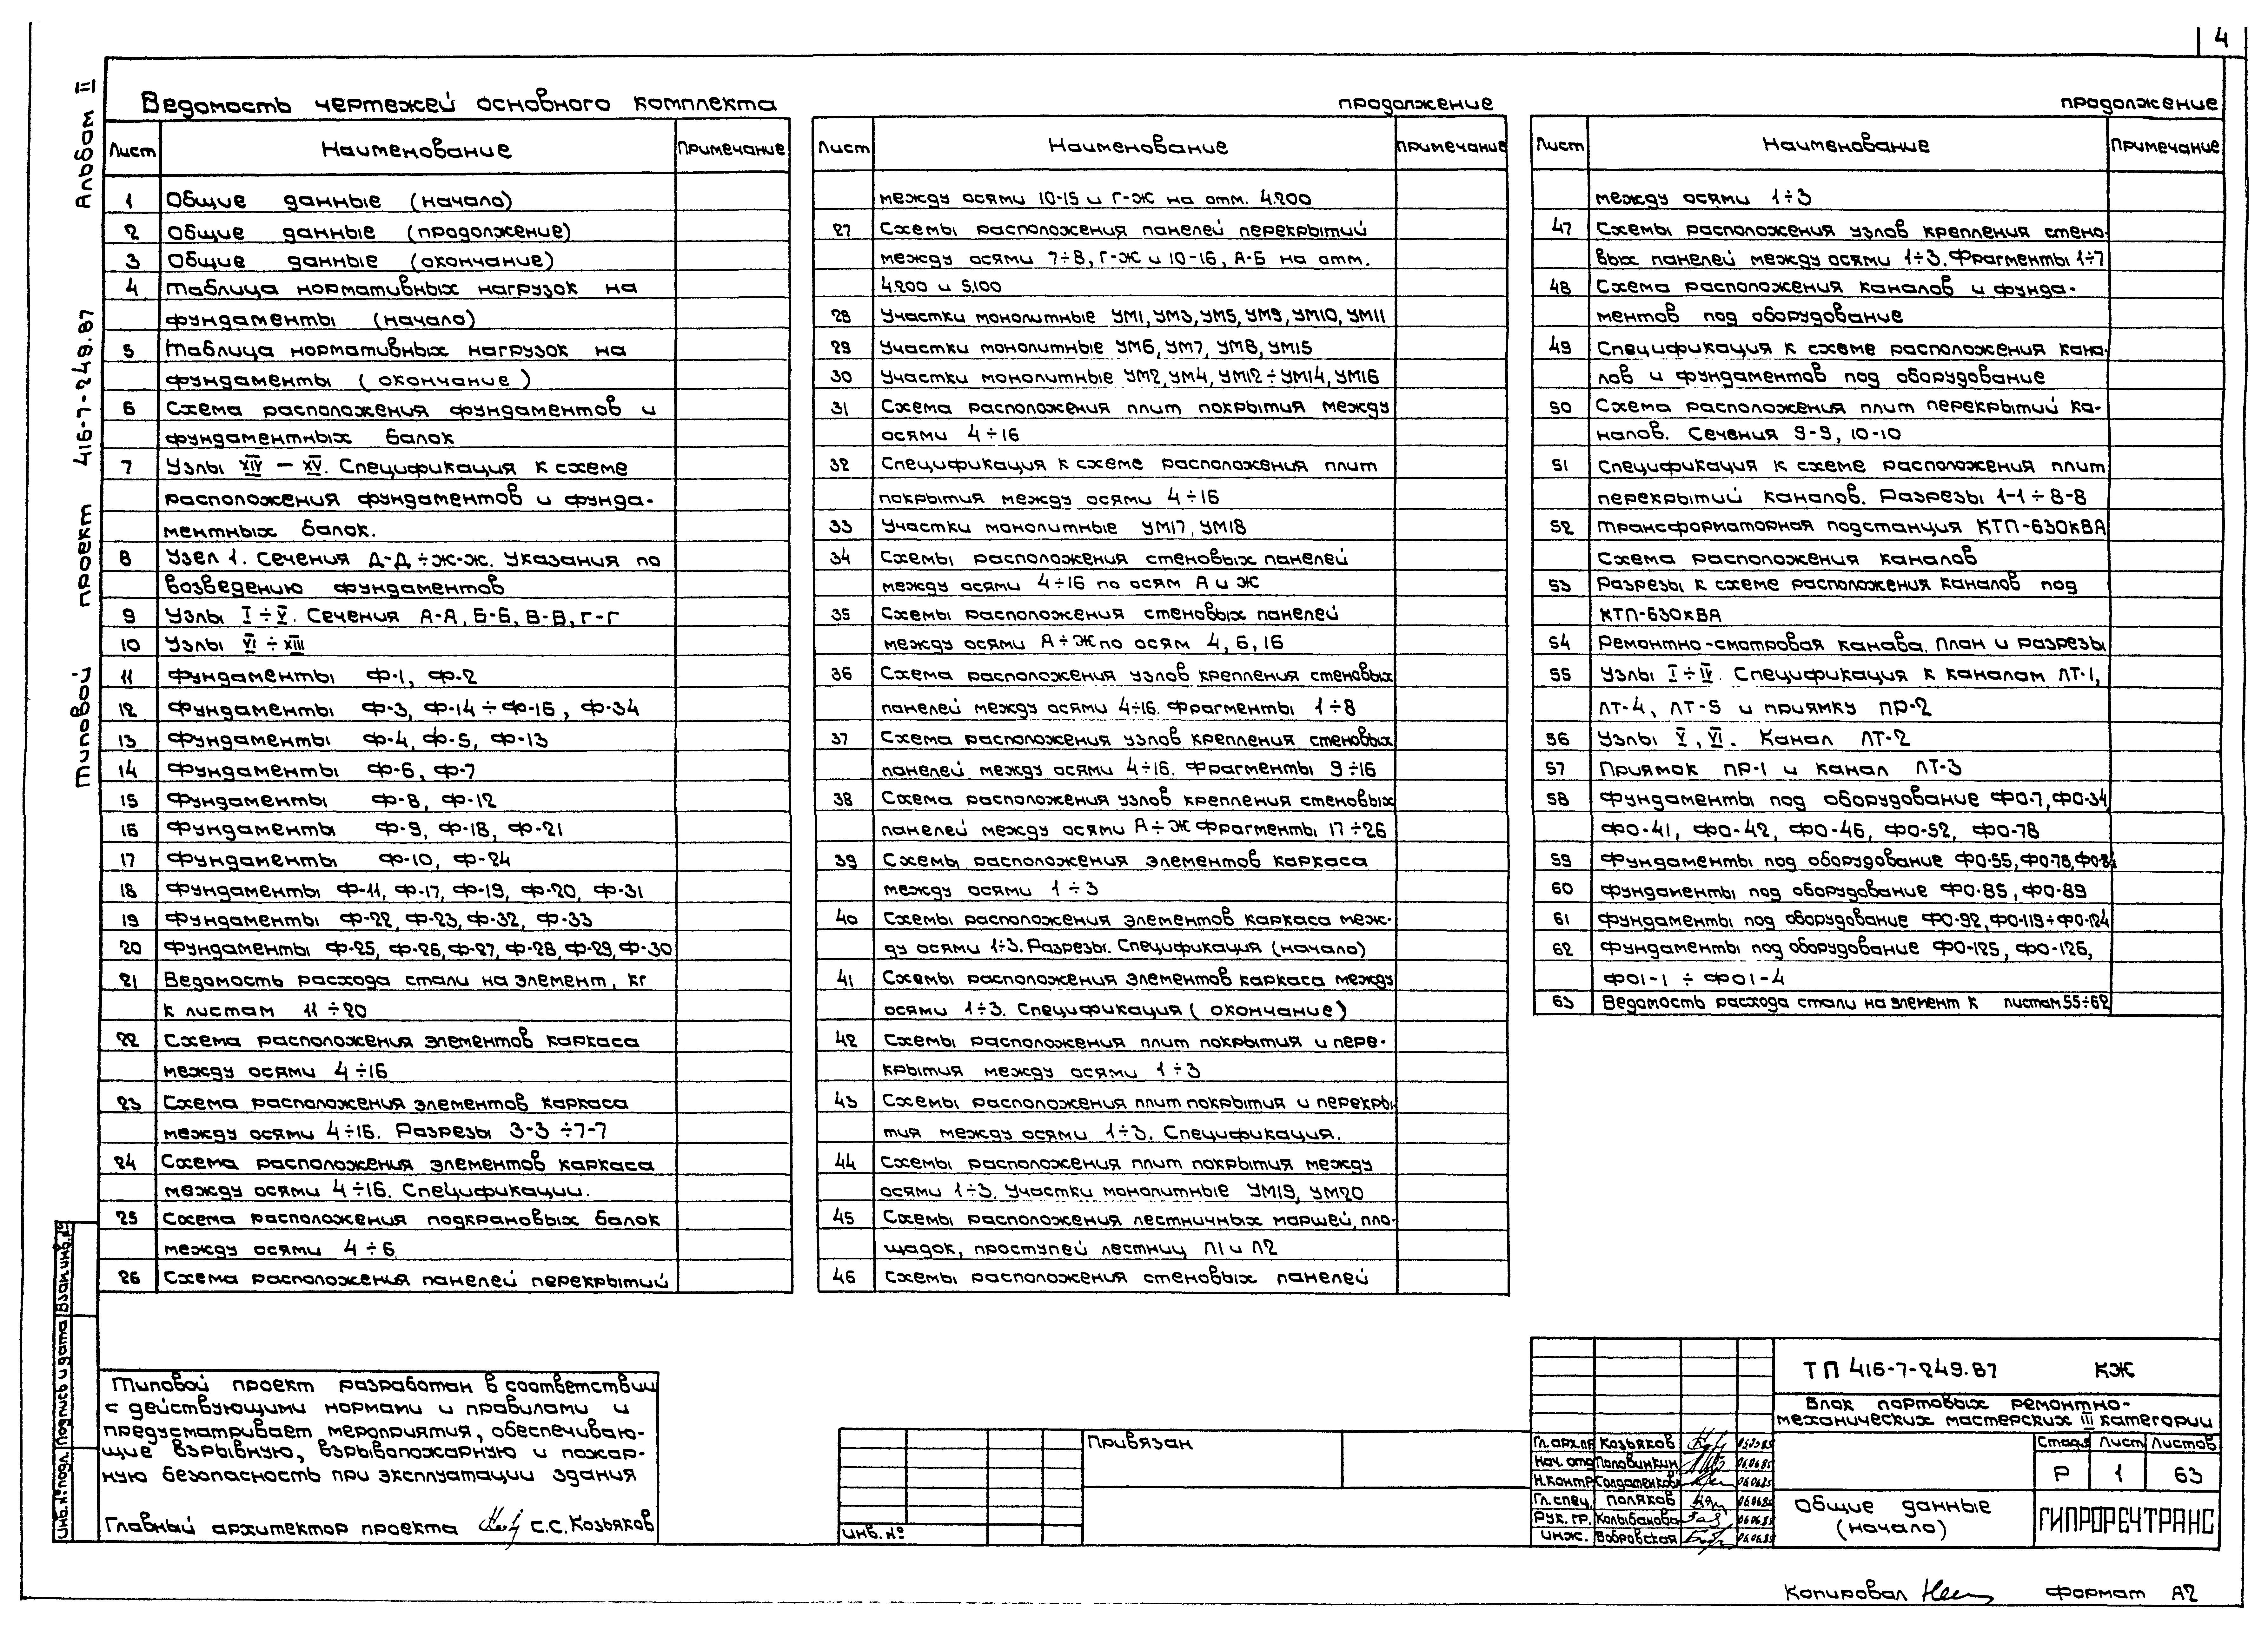 4
Альбом II
Типовой проект 416-7-249.87
Ведомость чертежей основного комплекта
Лист Наименование Примечание
1 Общие данные (начало)
2 Общие данные (продолжение)
3 Общие данные (окончание)
4 Таблица нормативных нагрузок на
фундаменты (начало)
5 Таблица нормативных нагрузок на
фундаменты (окончание)
6 Схема расположения фундаментов и
фундаментных балок
7 Узлы XIV — XV. Спецификация к схеме
расположения фундаментов и фунда-
ментных балок.
8 Узел 1. Сечения Д-Д ÷ Ж-Ж. Указания по
возведению фундаментов
9 Узлы I ÷ V. Сечения А-А, Б-Б, В-В, Г-Г
10 Узлы VI ÷ XIII
11 Фундаменты Ф-1, Ф-2
12 Фундаменты Ф-3, Ф-14 ÷ Ф-16, Ф-34
13 Фундаменты Ф-4, Ф-5, Ф-13
14 Фундаменты Ф-6, Ф-7
15 Фундаменты Ф-8, Ф-12
16 Фундаменты Ф-9, Ф-18, Ф-21
17 Фундаменты Ф-10, Ф-24
18 Фундаменты Ф-11, Ф-17, Ф-19, Ф-20, Ф-31
19 Фундаменты Ф-22, Ф-23, Ф-32, Ф-33
20 Фундаменты Ф-25, Ф-26, Ф-27, Ф-28, Ф-29, Ф-30
21 Ведомость расхода стали на элемент, кг
к листам 11 ÷ 20
22 Схема расположения элементов каркаса
между осями 4 ÷ 16
23 Схема расположения элементов каркаса
между осями 4 ÷ 16. Разрезы 3-3 ÷ 7-7
24 Схема расположения элементов каркаса
между осями 4 ÷ 16. Спецификации.
25 Схема расположения подкрановых балок
между осями 4 ÷ 6
26 Схема расположения панелей перекрытий
продолжение
Лист Наименование Примечание
между осями 10-15 и Г-Ж на отм. 4.200
27 Схемы расположения панелей перекрытий
между осями 7÷8, Г-Ж и 10-16, А-Б на отм.
4.200 и 5.100
28 Участки монолитные УМ1, УМ3, УМ5, УМ9, УМ10, УМ11
29 Участки монолитные УМ6, УМ7, УМ8, УМ15
30 Участки монолитные УМ2, УМ4, УМ12 ÷ УМ14, УМ16
31 Схема расположения плит покрытия между
осями 4 ÷ 16
32 Спецификация к схеме расположения плит
покрытия между осями 4 ÷ 16
33 Участки монолитные УМ17, УМ18
34 Схемы расположения стеновых панелей
между осями 4 ÷ 16 по осям А и Ж
35 Схемы расположения стеновых панелей
между осями А ÷ Ж по осям 4, 6, 16
36 Схема расположения узлов крепления стеновых
панелей между осями 4÷16. Фрагменты 1 ÷ 8
37 Схема расположения узлов крепления стеновых
панелей между осями 4÷16. Фрагменты 9 ÷ 16
38 Схема расположения узлов крепления стеновых
панелей между осями А ÷ Ж Фрагменты 17 ÷ 26
39 Схемы расположения элементов каркаса
между осями 1 ÷ 3
40 Схемы расположения элементов каркаса меж-
ду осями 1÷3. Разрезы. Спецификация (начало)
41 Схемы расположения элементов каркаса между
осями 1÷3. Спецификация (окончание)
42 Схемы расположения плит покрытия и пере-
крытия между осями 1 ÷ 3
43 Схемы расположения плит покрытия и перекры-
тия между осями 1÷3. Спецификация.
44 Схемы расположения плит покрытия между
осями 1÷3. Участки монолитные УМ19, УМ20
45 Схемы расположения лестничных маршей, пло-
щадок, проступей лестниц Л1 и Л2
46 Схемы расположения стеновых панелей
продолжение
Лист Наименование Примечание
между осями 1÷3
47 Схемы расположения узлов крепления стено-
вых панелей между осями 1÷3. Фрагменты 1÷7
48 Схема расположения каналов и фунда-
ментов под оборудование
49 Спецификация к схеме расположения кана-
лов и фундаментов под оборудование
50 Схема расположения плит перекрытий ка-
налов. Сечения 9-9, 10-10
51 Спецификация к схеме расположения плит
перекрытий каналов. Разрезы 1-1 ÷ 8-8
52 Трансформаторная подстанция КТП-630кВА
Схема расположения каналов
53 Разрезы к схеме расположения каналов под
КТП-630кВА
54 Ремонтно-смотровая канава. План и разрезы
55 Узлы I ÷ IV. Спецификация к каналам ЛТ-1,
ЛТ-4, ЛТ-5 и приямку ПР-2
56 Узлы V, VI. Канал ЛТ-2
57 Приямок ПР-1 и канал ЛТ-3
58 Фундаменты под оборудование ФО-7, ФО-34
ФО-41, ФО-42, ФО-46, ФО-52, ФО-78
59 Фундаменты под оборудование ФО-55, ФО-76, ФО-84
60 Фундаменты под оборудование ФО-85, ФО-89
61 Фундаменты под оборудование ФО-92, ФО-119÷ФО-124
62 Фундаменты под оборудование ФО-125, ФО-126,
ФО1-1 ÷ ФО1-4
63 Ведомость расхода стали на элемент к листам 55÷62
Типовой проект разработан в соответствии
с действующими нормами и правилами и
предусматривает мероприятия, обеспечиваю-
щие взрывную, взрывопожарную и пожар-
ную безопасность при эксплуатации здания
Главный архитектор проекта С.С. Козьяков
Инв. № подл. Подпись и дата Взам инв. №
Привязан
Инв. №
ТП 416-7-249.87 КЖ
Блок портовых ремонтно-
механических мастерских III категории
Гл. арх. пр Козьяков
Нач. отд Половинкин 06.06.85
Н. контр Солдатенков 06.06.85
Гл. спец. Поляков 06.06.85
Рук. гр. Колыбанова 06.06.85
Инж. Бобровская 06.06.85
Стадия Лист Листов
Р 1 63
Общие данные
(начало)
ГИПРОРЕЧТРАНС
Копировал
Формат А2